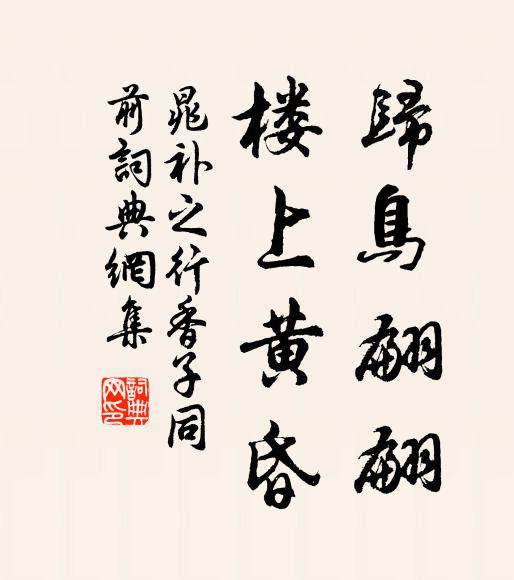 歸鳥翩翩
楼上黄昏
晁补之行香子同
前詞典網集
詞典
网印